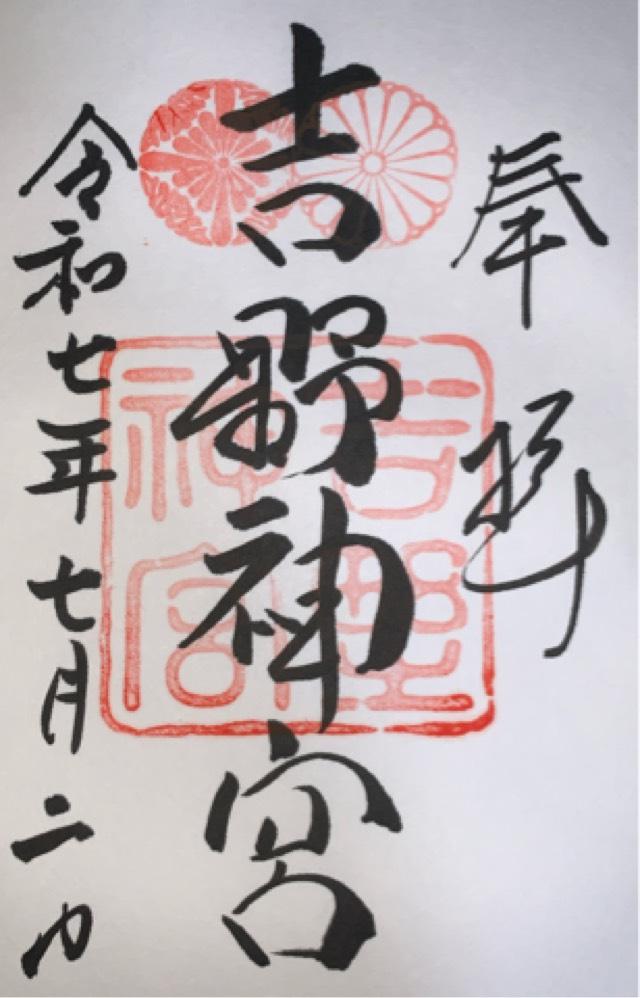 奉拝
吉野神宮
吉野
神宮
令和七年七月二日